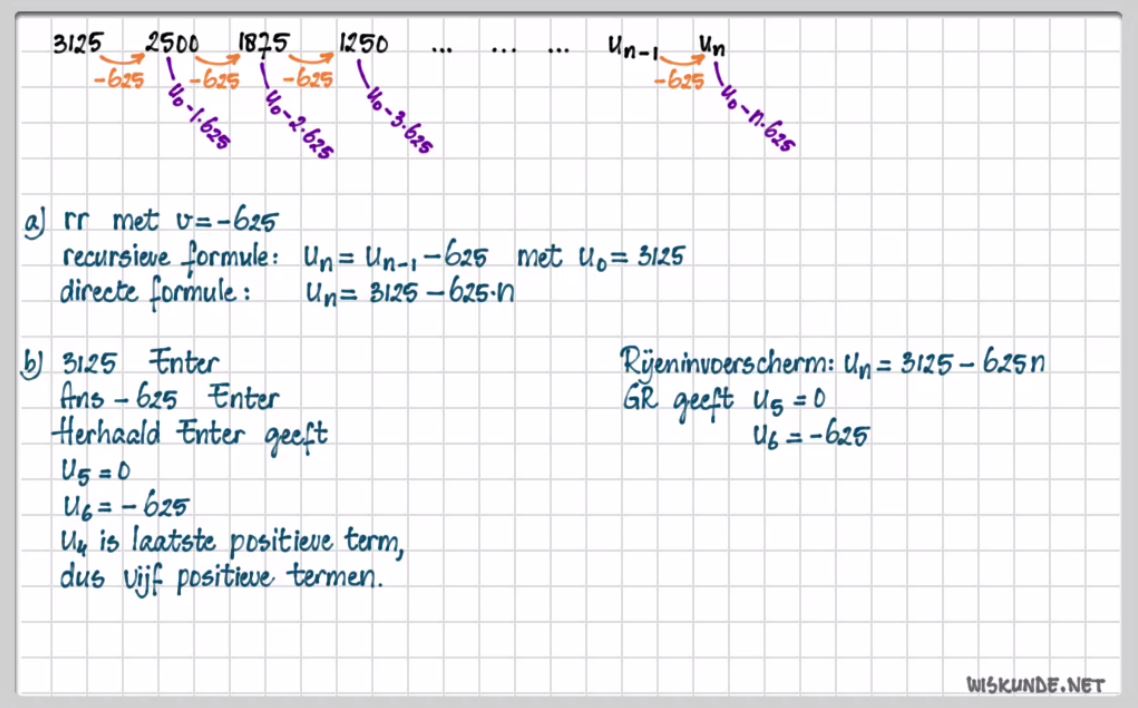 3125 2500 1875 1250 ... ... ... un-1 un
-625 -625 -625 -625
u0-1.625 u0-2.625 u0-3.625 u0-n.625
a) rr met v=-625
recursieve formule: un = un-1 - 625 met u0 = 3125
directe formule: un = 3125 - 625·n
b) 3125 Enter
Ans - 625 Enter
Herhaald Enter geeft
u5 = 0
u6 = -625
u4 is laatste positieve term,
dus vijf positieve termen.
Rijeninvoerscherm: un = 3125 - 625n
GR geeft u5 = 0
u6 = -625
WISKUNDE.NET